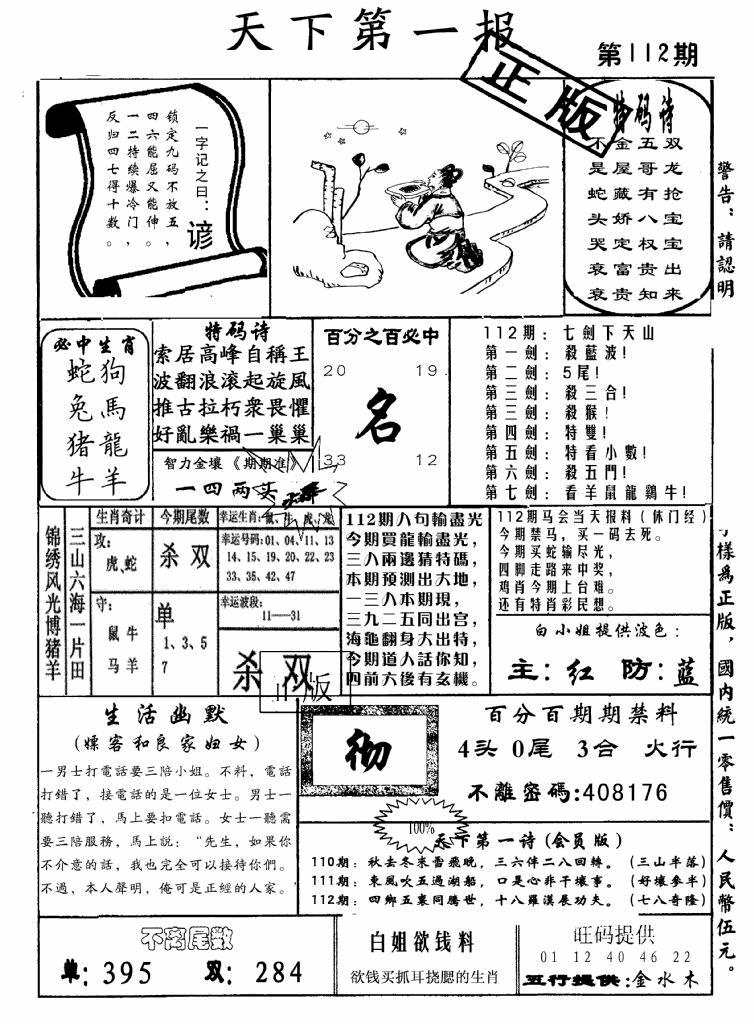 天下第一报
第112期
正版
一字记之曰：谚
锁定九码不放五，
四六能屈又能伸。
一二持续爆冷门，
反归四七得十数。
特码诗
不金五双
是屋哥龙
蛇藏有抢
头娇八宝
哭定权宝
衰富贵出
衰贵知来
警告：請認明
必中生肖
蛇狗
兔馬
猪龍
牛羊
特码诗
索居高峰自稱王
波翻浪滚起旋風
推古拉朽衆畏懼
好亂樂禍一巢巢
智力金壤《期期准》
一四两头
百分之百必中
20 19
名
33 12
112期：七劍下天山
第一劍：殺藍波！
第二劍：5尾！
第三劍：殺三合！
第三劍：殺猴！
第四劍：特雙！
第五劍：特看小數！
第六劍：殺五門！
第七劍：看羊鼠龍鷄牛！
锦绣风光博猪羊
三山六海一片田
生肖奇计
攻：
虎、蛇
守：
鼠牛
马羊
今期尾数
杀双
单
1、3、5
7
幸运生肖：鼠、牛、虎、龙
幸运号码：01、04、11、13
14、15、19、20、22、23
33、35、42、47
幸运波段：
11——31
杀双
正版
112期八句輸盡光
今期買龍輸盡光，
三八兩邊猜特碼，
本期預測出大地，
一三八本期現，
三九二五同出宫，
海龜翻身大出特，
今期道人話你知，
四前六後有玄機。
112期马会当天报料（休门经）
今期禁马，买一码去死。
今期买蛇输尽光，
四脚走路来中奖，
鸡肖今期上台难。
还有特肖彩民想。
白小姐提供波色：
主：红 防：蓝
樣爲正版，國内統一零售價：人民幣伍元。
生活幽默
（嫖客和良家妇女）
一男士打電話要三陪小姐。不料，電話
打錯了，接電話的是一位女士。男士一
聽打錯了，馬上要扣電話。女士一聽需
要三陪服務，馬上説：“先生，如果你
不介意的話，我也完全可以接待你們。
不過，本人聲明，俺可是正經的人家。
彻
百分百期期禁料
4头 0尾 3合 火行
不離密碼：408176
100%
天下第一诗（会员版）
110期：秋去冬來雪飛晚，三六伴二八回轉。（三山半落）
111期：東風吹五過湖船，口是心非干壞事。（好壞參半）
112期：四鄉五裏同騰世，十八羅漢展功夫。（七八奇隆）
不离尾数
单：395 双：284
白姐欲钱料
欲钱买抓耳挠腮的生肖
旺码提供
01 12 40 46 22
五行提供：金水木